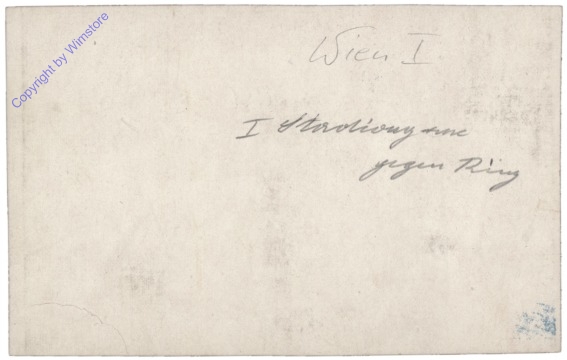 Wien I.
I Stadiongasse
gegen Ring
Copyright by Wimstore